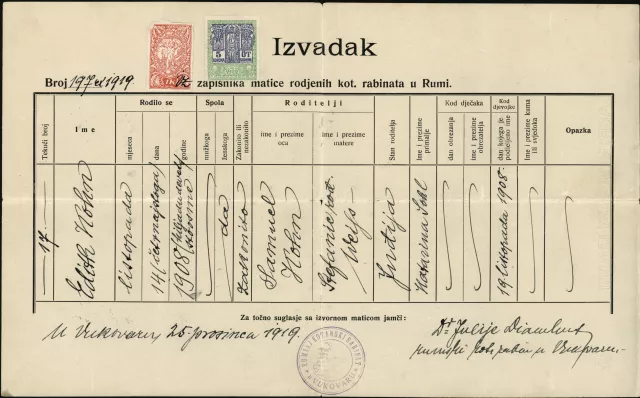 Izvadak
Broj 197 ex 1919. iz zapisnika matice rodjenih kot. rabinata u Rumi.
Tekući broj
Ime
Rodilo se
mjeseca
dana
godine
Spola
mužkoga
ženskoga
Zakonito ili nezakonito
Roditelji
ime i prezime oca
ime i prezime matere
Stan roditelja
Ime i prezime primalje
Kod dječaka
dan obrezanja
ime i prezime obrezatelja
Kod djevojke
dan kojega je podeljeno ime
Ime i prezime kuma ili svjedoka
Opazka
17.
Edith Hohn
listopada
14 (četrnajstoga)
1908
da
zakonito
Samuel Hohn
Stefanie rođ. Weiss
Indjija
Katarina
19. listopada 1908.
Za točno suglasje sa izvornom maticom jamči:
U Vukovaru, 25. prosinca 1919.
Dr. Julije Diamant
rumski kot. rabin u Vukovaru.
VUKOVARU
5